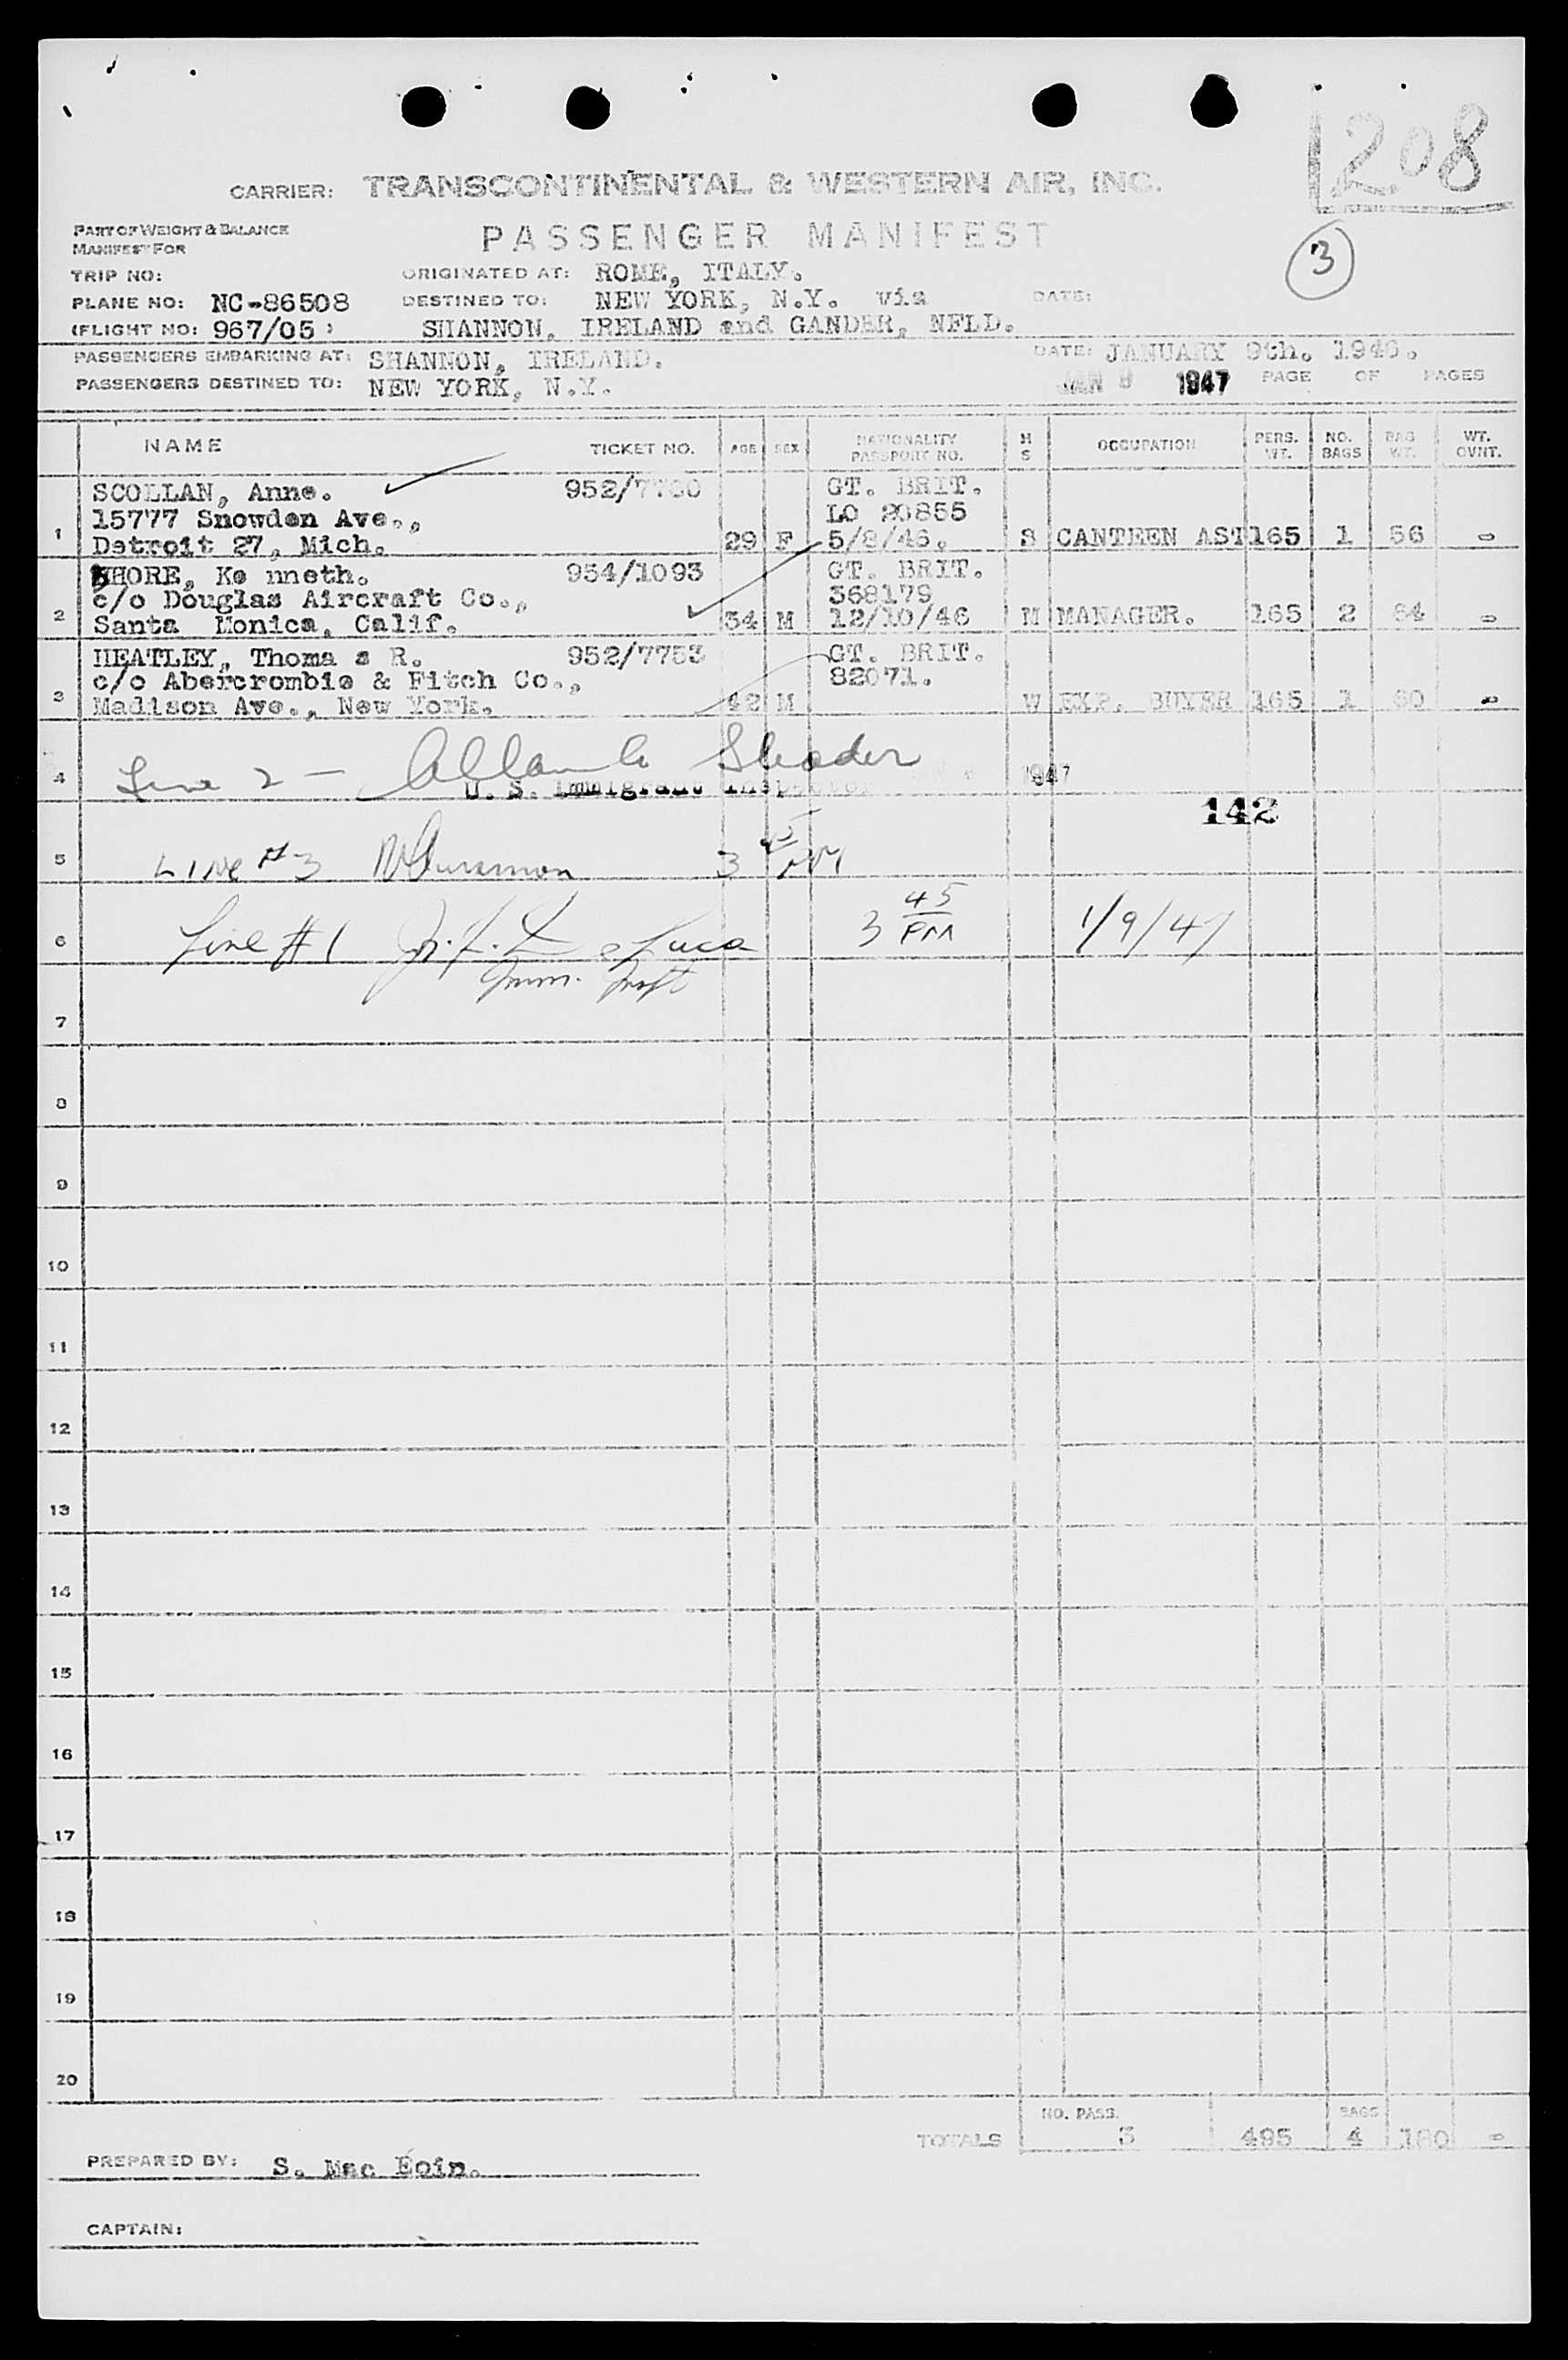 208
CARRIER: TRANSCONTINENTAL & WESTERN AIR, INC.
PART OF WEIGHT & BALANCE
MANIFEST FOR
PASSENGER MANIFEST
3
TRIP NO:
ORIGINATED AT: ROME, ITALY.
PLANE NO: NC-86508
DESTINED TO: NEW YORK, N.Y. via
DATE:
(FLIGHT NO: 967/05)
SHANNON, IRELAND and GANDER, NFLD.
PASSENGERS EMBARKING AT: SHANNON, IRELAND.
DATE: JANUARY 9th. 1946.
PASSENGERS DESTINED TO: NEW YORK, N.Y.
JAN 9 1947 PAGE OF PAGES
NAME TICKET NO. AGE SEX NATIONALITY PASSPORT NO. M S OCCUPATION PERS. WT. NO. BAGS BAG WT. WT. OVNT.
SCOLLAN, Anne. GT. BRIT.
15777 Snowden Ave., LO 20855
1 Detroit 27, Mich. 29 F 5/8/46. S CANTEEN AST 165 1 56 -
SHORE, Ke nneth. 954/1093 GT. BRIT.
c/o Douglas Aircraft Co., 368179
2 Santa Monica, Calif. 34 M 12/10/46 M MANAGER. 165 2 64 -
HEATLEY, Thoma s R. 952/7753 GT. BRIT.
c/o Abercrombie & Fitch Co., 82071.
3 Madison Ave., New York. 42 M W EXP. BUYER 165 1 60 -
4 Line 2 -
U. S. Immigrant Inspector 1947
142
5 LINE #3 3 45 PM
6 Line #1 3 45 PM 1/9/47
7
8
9
10
11
12
13
14
15
16
17
18
19
20
TOTALS NO. PASS. 3 495 BAGS 4 180 -
PREPARED BY: S. Mac Eoin.
CAPTAIN: